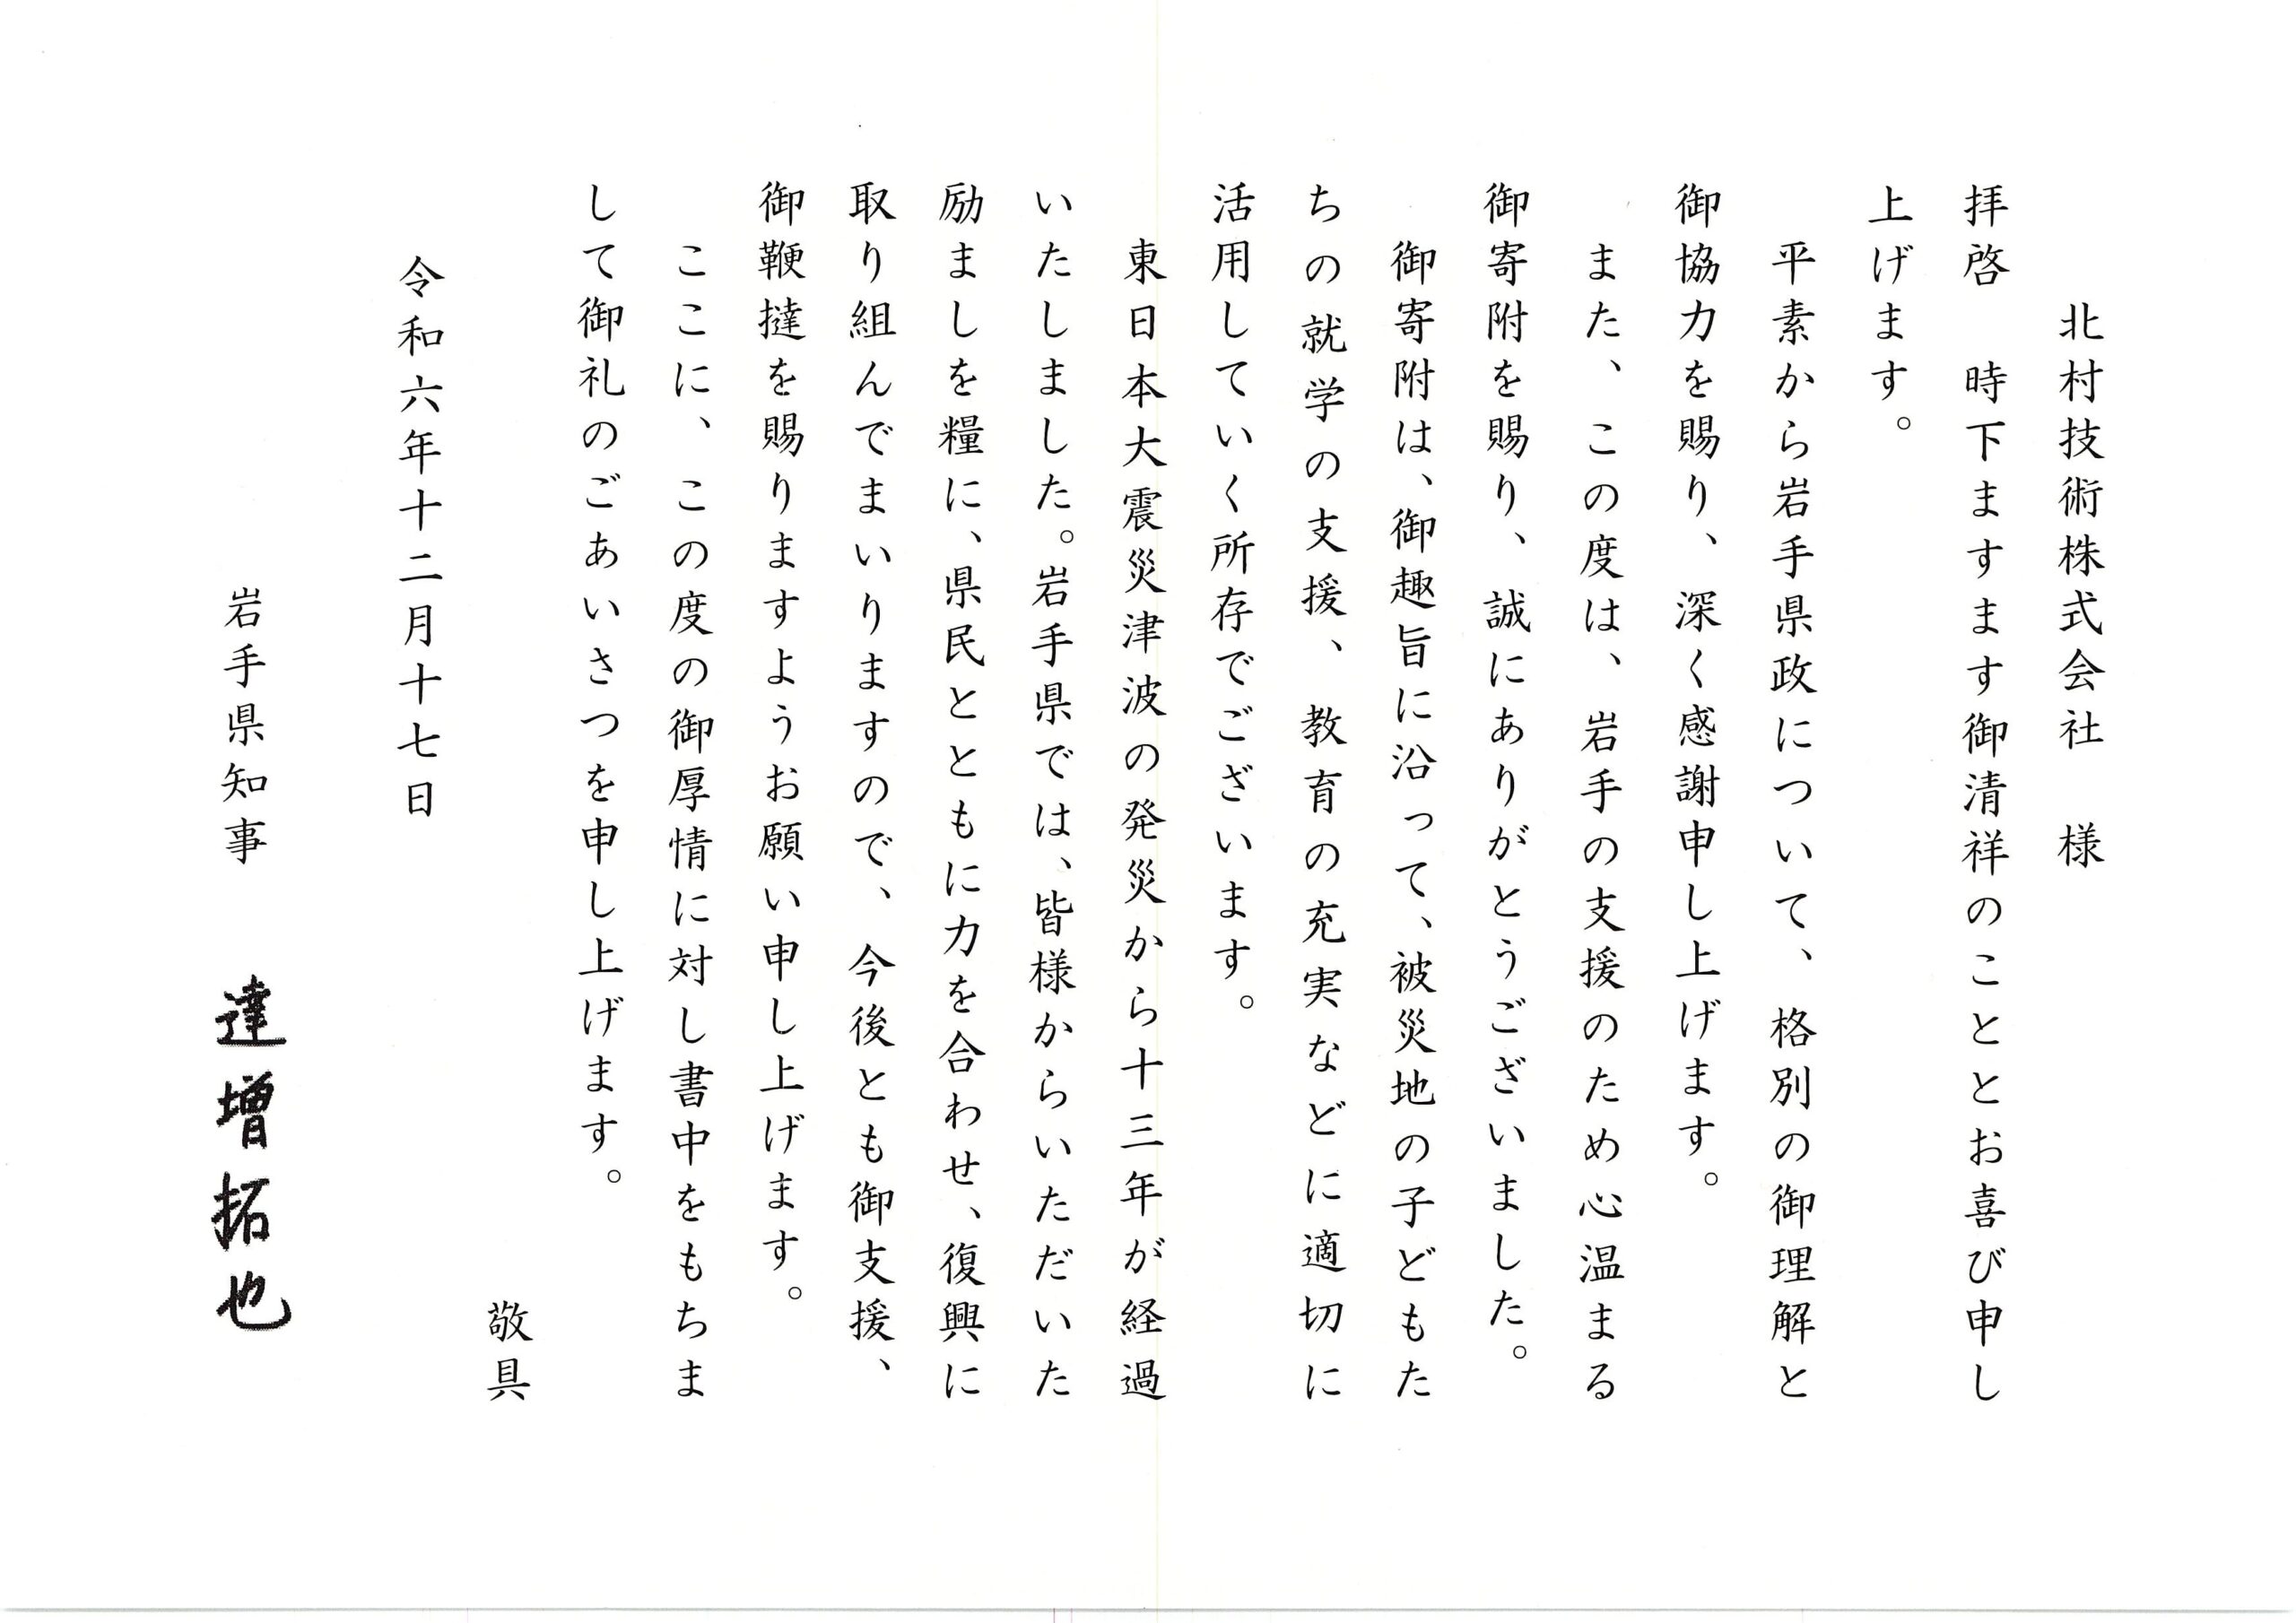 北村技術株式会社　様
拝啓　時下ますます御清祥のこととお喜び申し
上げます。
平素から岩手県政について、格別の御理解と
御協力を賜り、深く感謝申し上げます。
また、この度は、岩手の支援のため心温まる
御寄附を賜り、誠にありがとうございました。
御寄附は、御趣旨に沿って、被災地の子どもた
ちの就学の支援、教育の充実などに適切に
活用していく所存でございます。
東日本大震災津波の発災から十三年が経過
いたしました。岩手県では、皆様からいただいた
励ましを糧に、県民とともに力を合わせ、復興に
取り組んでまいりますので、今後とも御支援、
御鞭撻を賜りますようお願い申し上げます。
ここに、この度の御厚情に対し書中をもちま
して御礼のごあいさつを申し上げます。
敬具
令和六年十二月十七日
岩手県知事　達増拓也